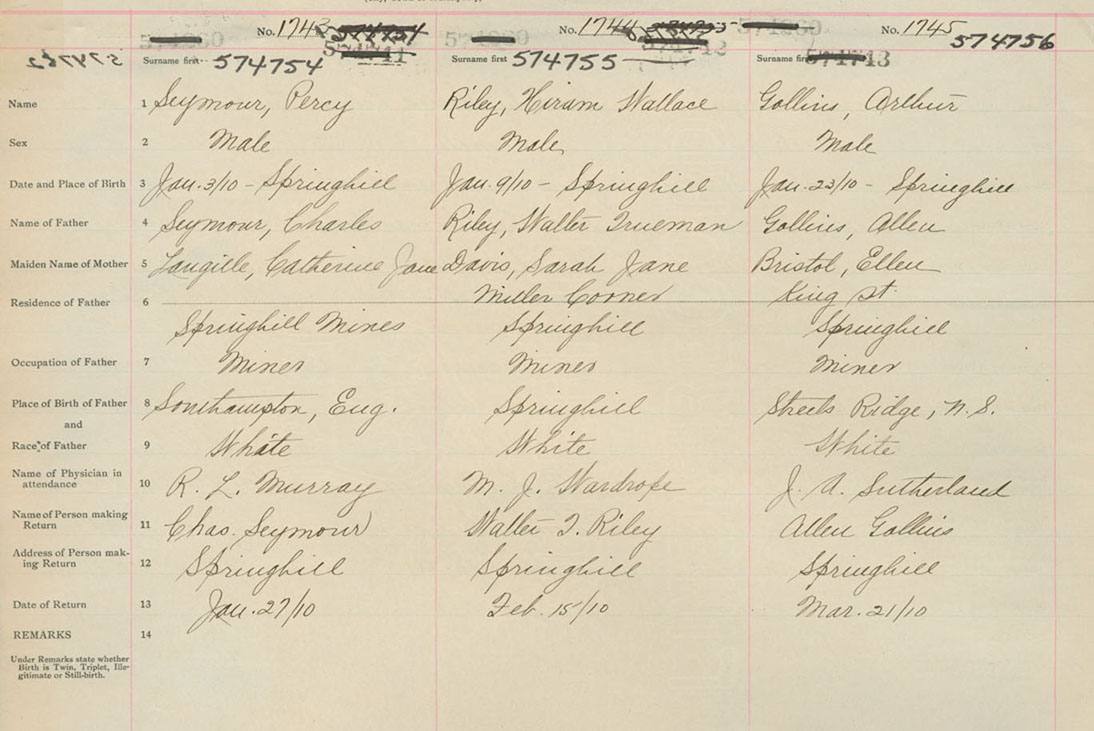 No. 1743 No. 1744 No. 1745
574756
Surname first 574754 Surname first 574755 Surname first
Name 1 Seymour, Percy Riley, Hiram Wallace Gollins, Arthur
Sex 2 Male Male Male
Date and Place of Birth 3 Jan. 3/10 - Springhill Jan. 9/10 - Springhill Jan. 23/10 - Springhill
Name of Father 4 Seymour, Charles Riley, Walter Trueman Gollins, Allen
Maiden Name of Mother 5 Langille, Catherine Jane Davis, Sarah Jane Bristol, Ellen
Residence of Father 6 Miller Corner King St.
Springhill Mines Springhill Springhill
Occupation of Father 7 Miner Miner Miner
Place of Birth of Father 8 Southampton, Eng. Springhill Streets Ridge, N.S.
and
Race of Father 9 White White White
Name of Physician in
attendance 10 R. L. Murray M. J. Wardrope J. A. Sutherland
Name of Person making
Return 11 Chas. Seymour Walter T. Riley Allen Gollins
Address of Person mak-
ing Return 12 Springhill Springhill Springhill
Date of Return 13 Jan. 27/10 Feb. 15/10 Mar. 21/10
REMARKS 14
Under Remarks state whether
Birth is Twin, Triplet, Ille-
gitimate or Still-birth.